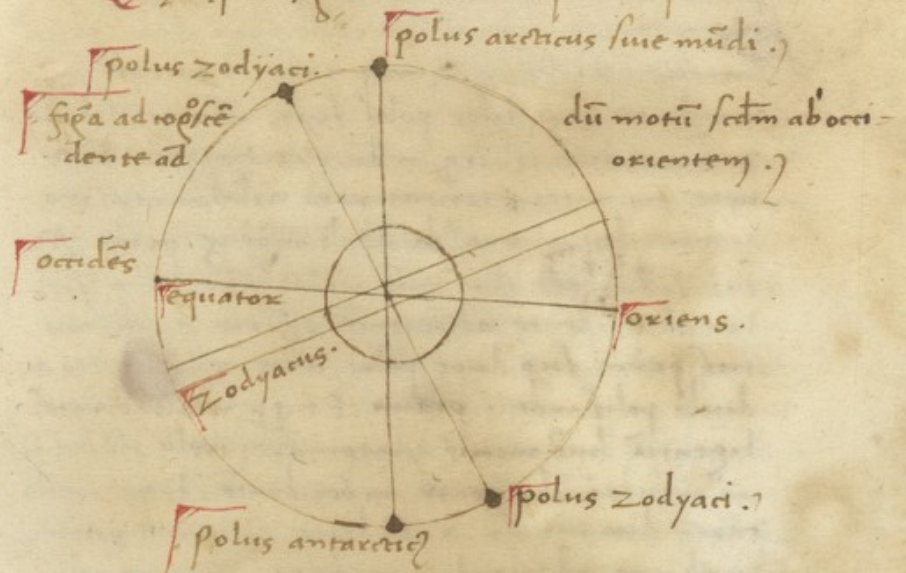 polus arcticus siue mūdi .
polus zodyaci.
figᵃa ad cogᵒscē
dū motū scđm ab occi-
dente ad
orientem .
occidēs
equator
oriens .
zodyacus.
polus zodyaci .
polus antarcticꝰ